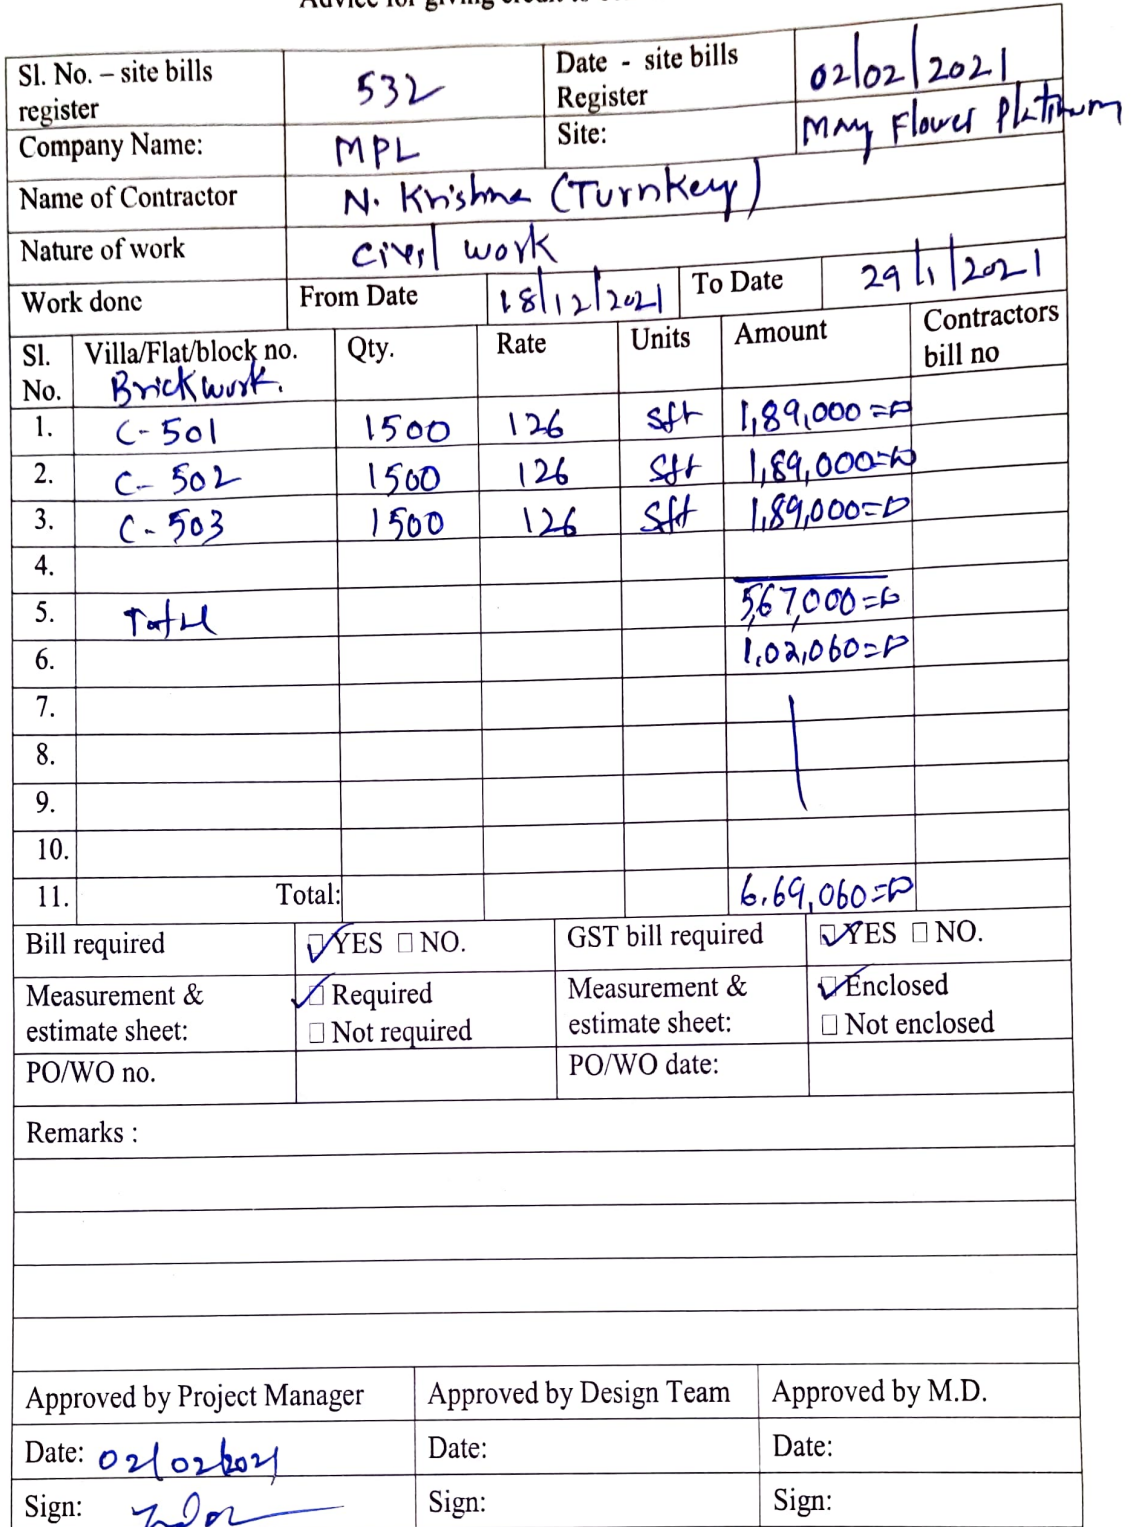 Sl. No. – site bills register 532 Date - site bills Register 02/02/2021
Company Name: MPL Site: May Flower Platinum
Name of Contractor N. Krishna (Turnkey)
Nature of work Civil work
Work done From Date 18/12/2021 To Date 29/1/2021
Sl. No. Villa/Flat/block no. Qty. Rate Units Amount Contractors bill no
Brick work.
1. C-501 1500 126 sft 1,89,000=00
2. C-502 1500 126 sft 1,89,000=00
3. C-503 1500 126 sft 1,89,000=00
4.
5. Total 5,67,000=00
6. 1,02,060=00
7.
8.
9.
10.
11. Total: 6,69,060=00
Bill required YES NO. GST bill required YES NO.
Measurement & estimate sheet: Required Measurement & estimate sheet: Enclosed
Not required Not enclosed
PO/WO no. PO/WO date:
Remarks :
Approved by Project Manager Approved by Design Team Approved by M.D.
Date: 02/02/2021 Date: Date:
Sign: Sign: Sign: